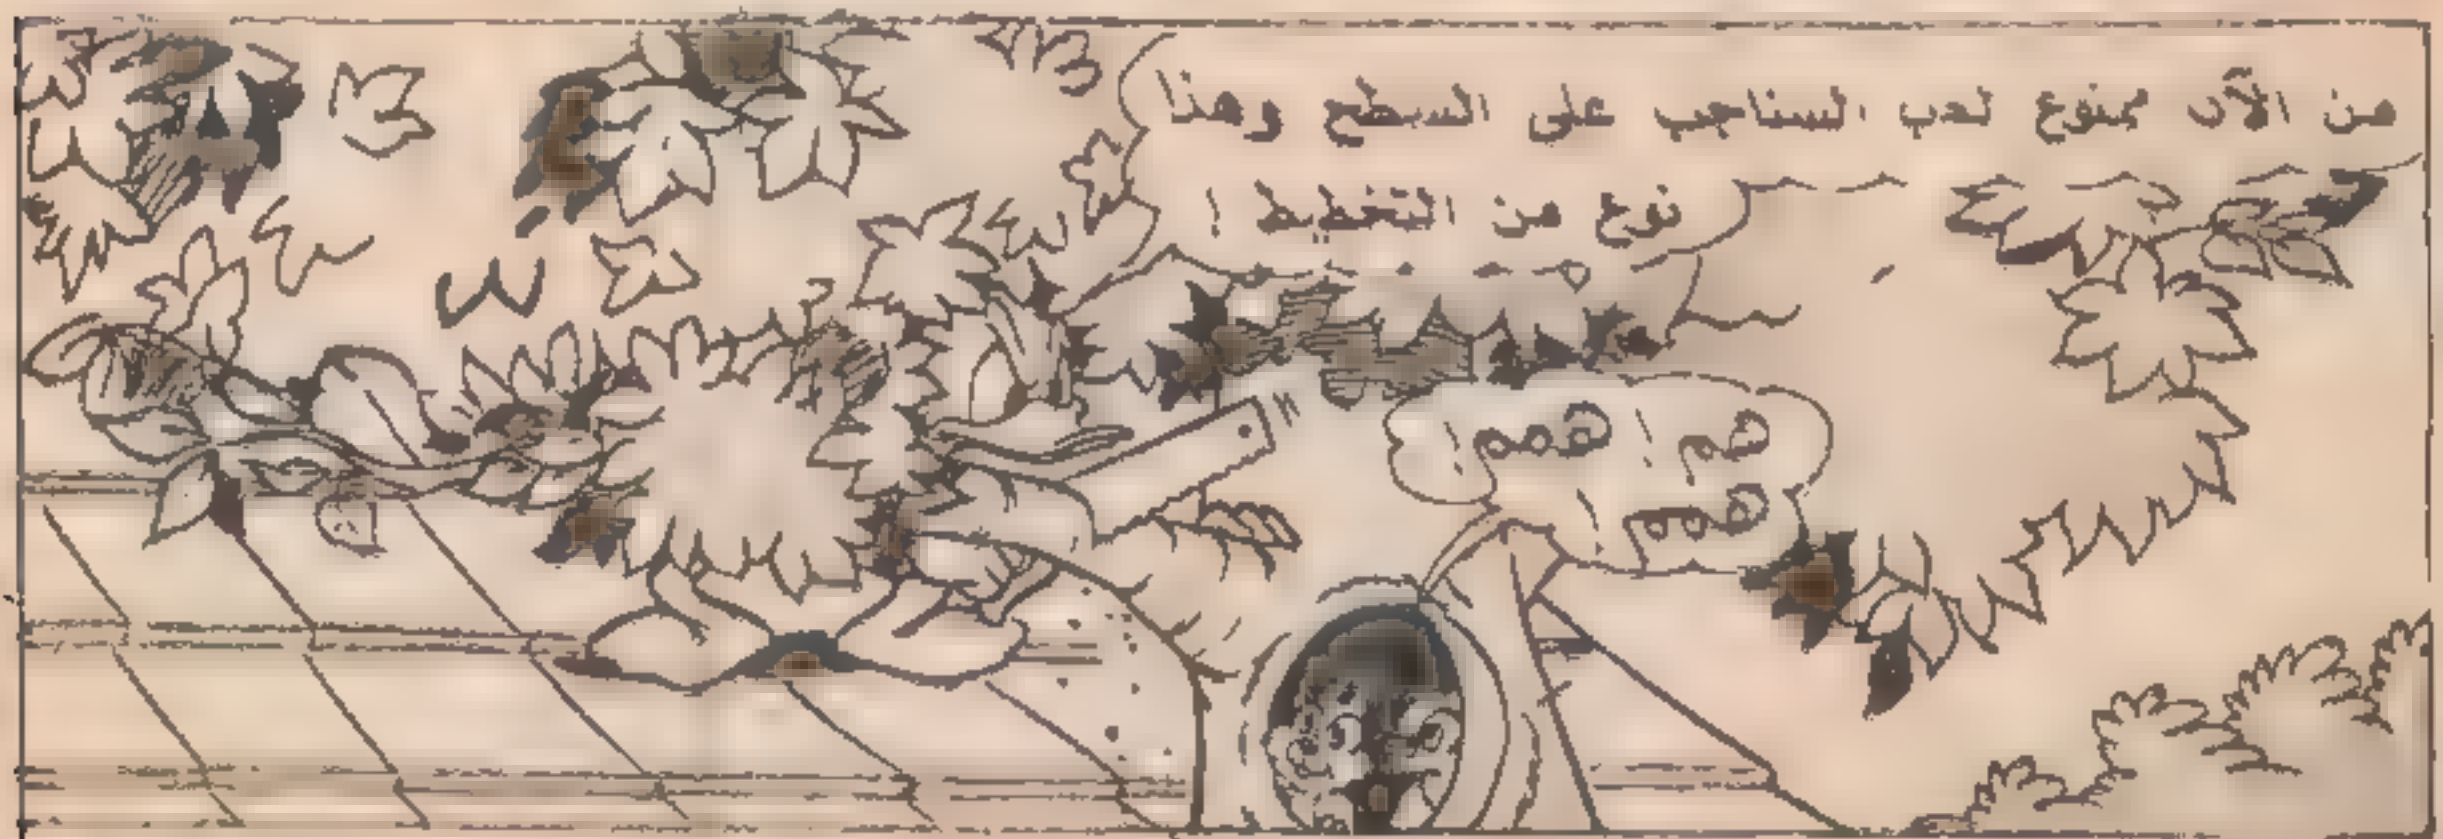 من الآن ممنوع لعب السناجب على السطح وهذا
نوع من التخطيط !
هم ! همم !
! همم